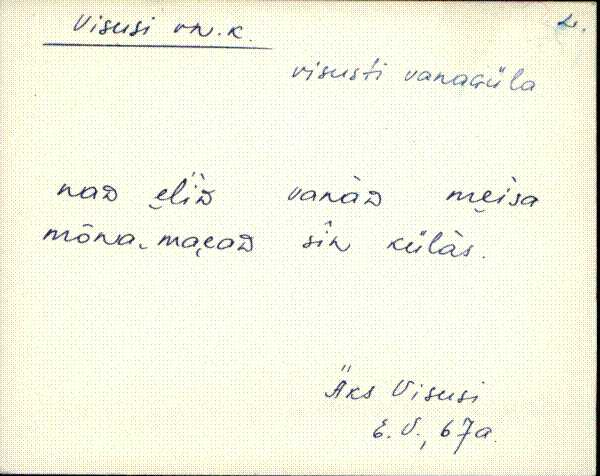 Visusi vn.k. 2.
visusti vanaGüla
naD elìD vanàD mẹisa
mõnamaạeaD sîn külàs.
Äks Visusi
E.V., 67a.